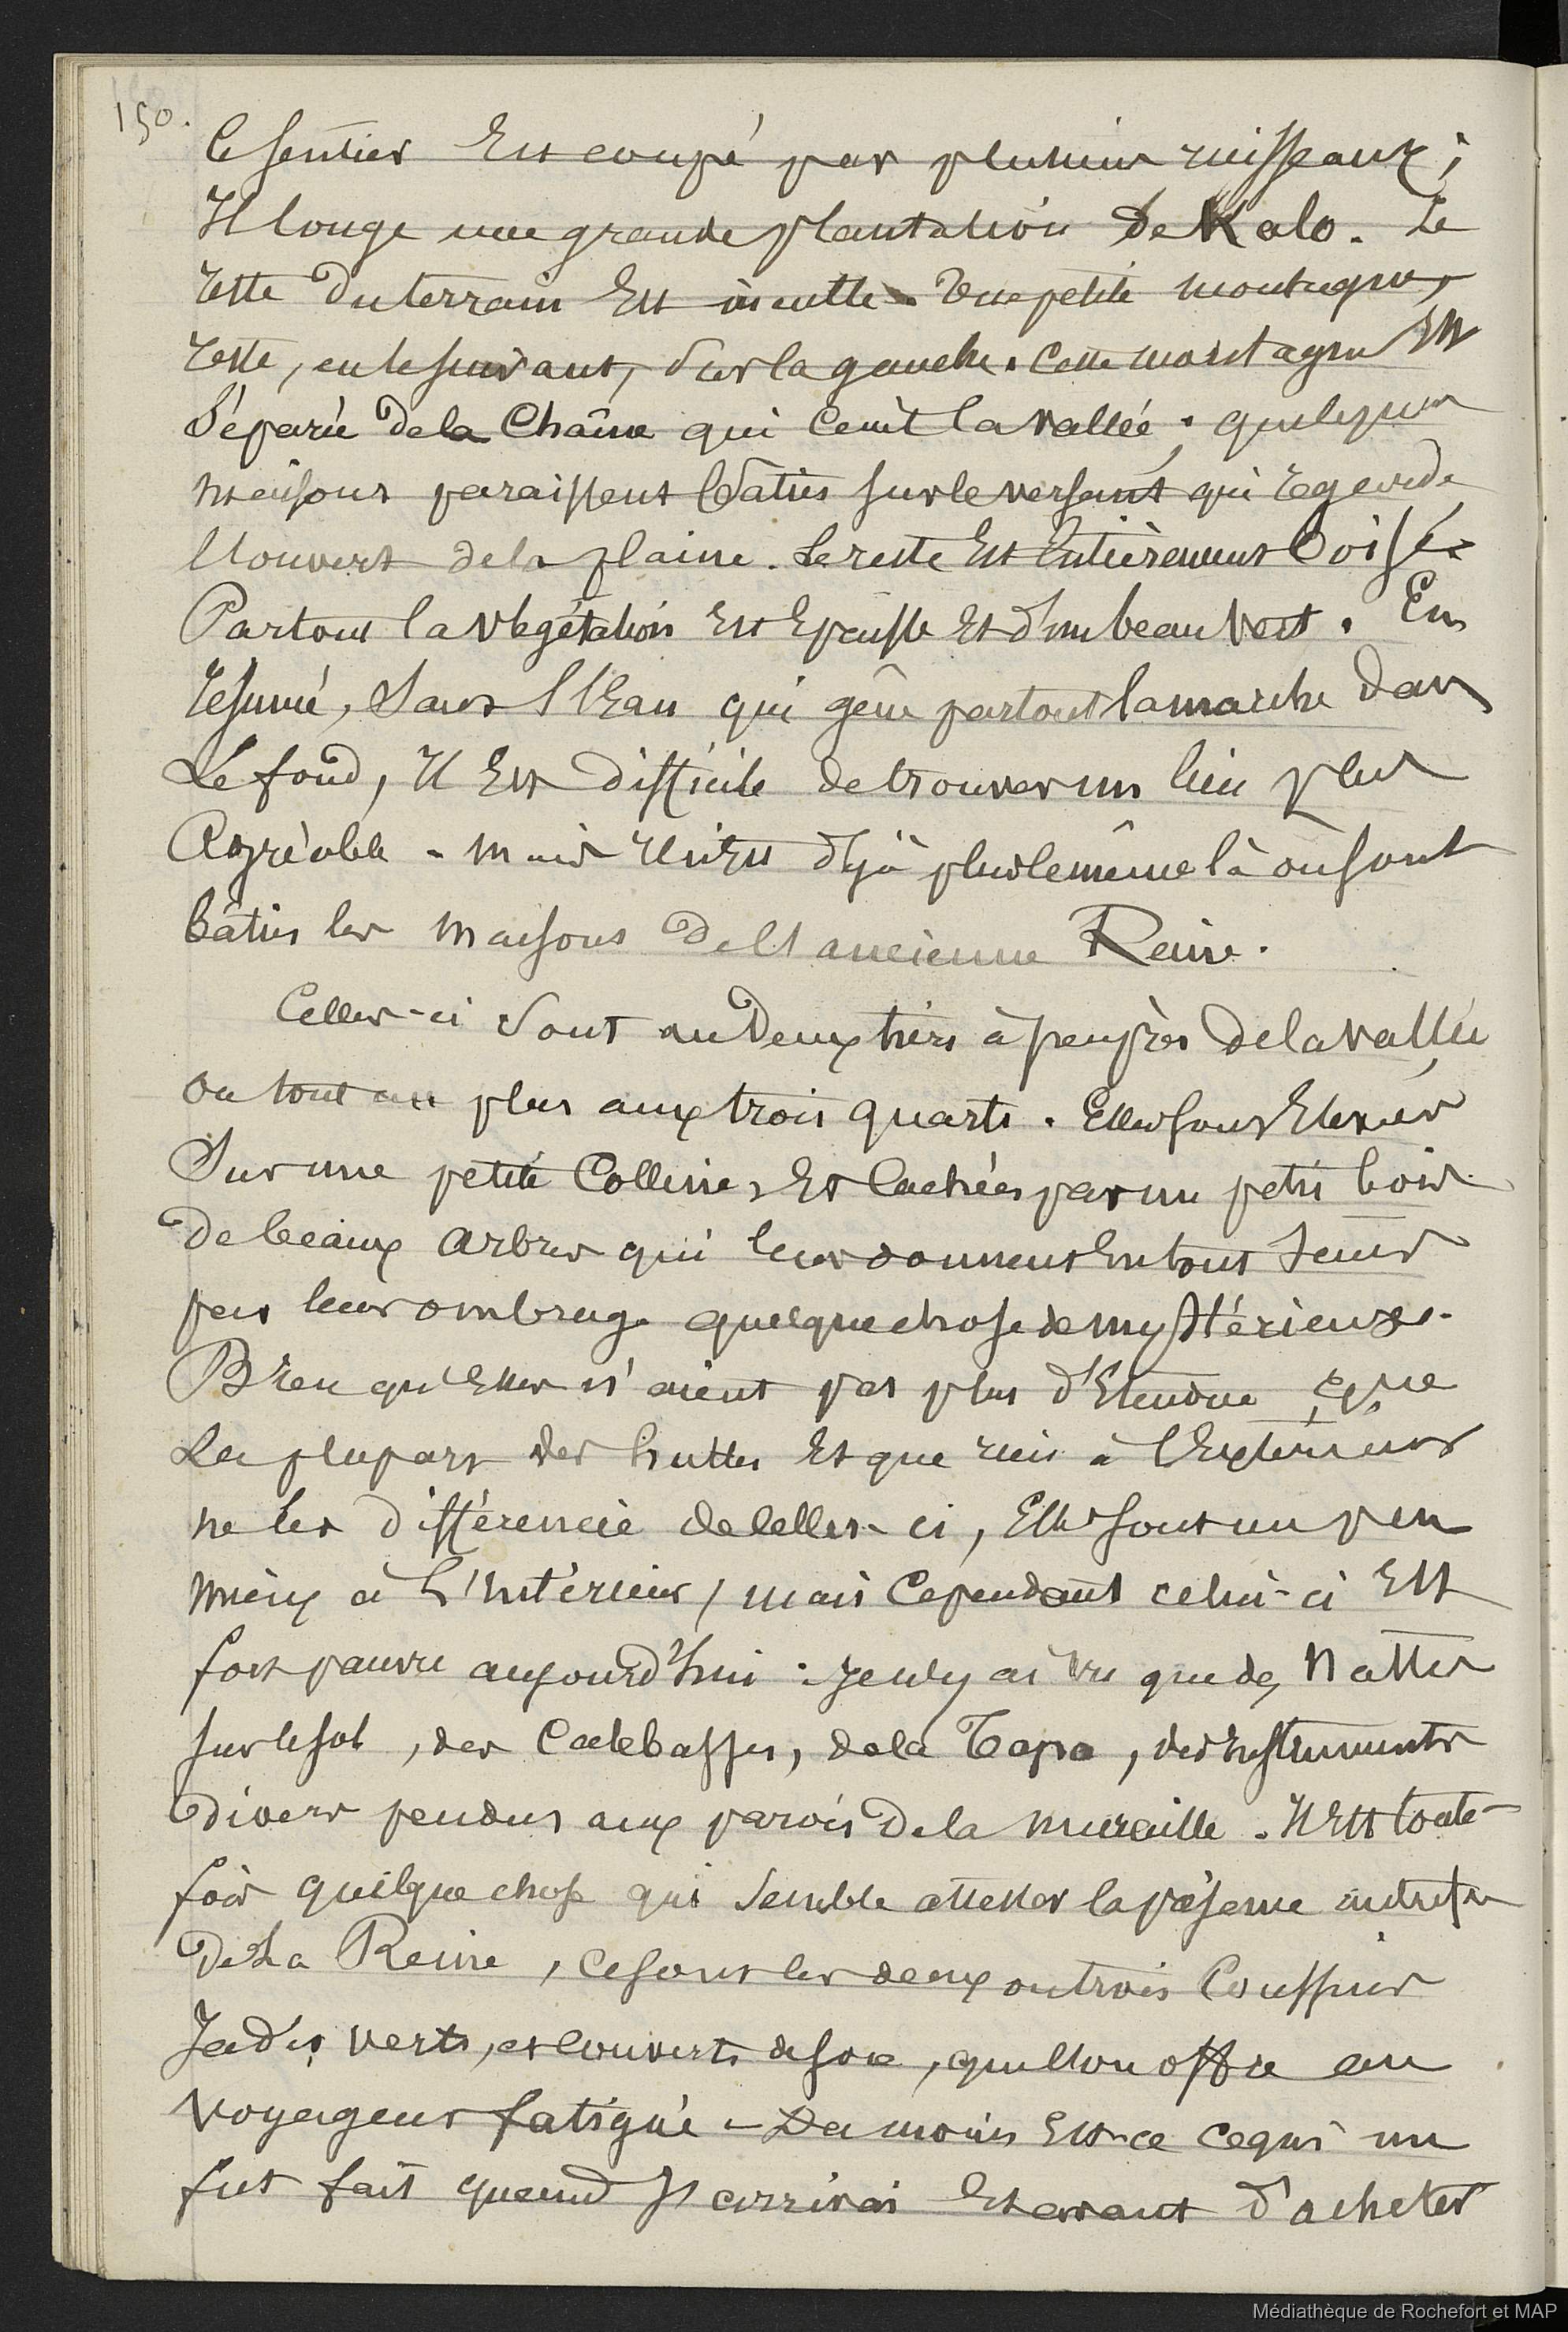 150.
le sentier Est coupé par plusieurs ruisseaux ;
Il longe une grande plantation de Kalo. Le
reste du terrain Est inculte. Une petite montagne,
reste, en le suivant, sur la gauche. Cette montagne Est
Séparée de la Chaîne qui Ceint la vallée ; quelques
maisons paraissent bâties sur le versant qui regarde
l'ouvert de la plaine. Le reste Est Entièrement boisé.
Partout la végétation Est Epaisse Et d'un beau vert. En
résumé, Sans l'Eau qui gêne partout la marche dans
Le fond, Il Est difficile de trouver un lieu plus
Agréable. mais Il n'Est déjà plus le même là où sont
bâties les maisons de l'ancienne Reine.
Celles-ci sont aux Deux tiers à peu près de la vallée
ou tout au plus aux trois quarts. Elles sont Elevées
Sur une petite Colline, Et Cachées par un petit bois
de beaux Arbres qui leur donnent En tous sens
par leur ombrage quelque chose de mystérieux.
Bien qu'Elles n'aient pas plus d'Etendue que
La plupart des huttes Et que rien à l'Extérieur
ne les différencie de Celles-ci, Elles sont un peu
mieux à l'Intérieur, mais Cependant celui-ci Est
fort pauvre aujourd'hui : Je n'y ai vu que des Nattes
sur le sol, des Calebasses, de la Tapa, des Instruments
divers pendus aux parois de la muraille. Il Est toute-
fois quelque chose qui semble attester la présence
De La Reine, ce sont les deux ou trois Coussins
Jadis verts, et Couverts de soie, que l'on offre au
voyageur fatigué - Du moins Est-ce ce qui me
fut fait quand J'arrivai Et avant d'acheter
Médiathèque de Rochefort et MAP